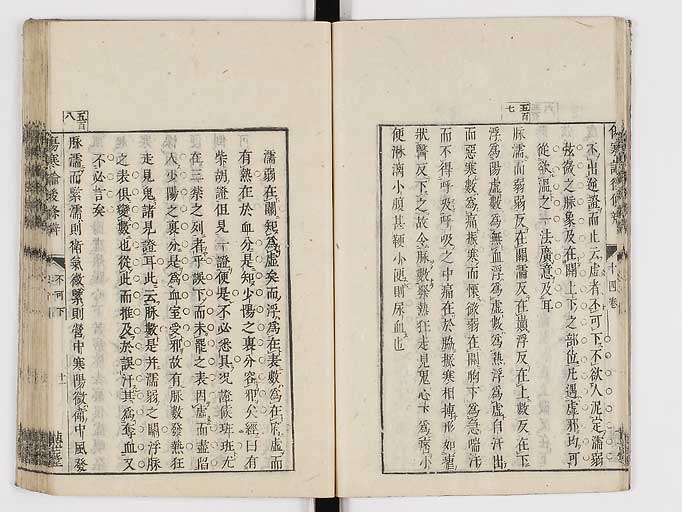 不出證而止云虛者不可下不欲人泥定濡弱
弦微之脉象及在關上下之部位凡遇虛邪均可
從欲溫之一法廣意及耳
五百七
脉濡而弱弱反在關濡反在巔浮反在上數反在下
浮爲陽虛數爲無血浮爲虛數爲熱浮爲虛自汗出
而惡寒數爲痛振寒而慄微弱在關胸下爲急喘汗
而不得呼吸呼吸之中痛在於脇振寒相摶形如瘧
狀醫反下之故令脉數發熱狂走見鬼心下爲痞小
便淋漓小腹甚鞕小便則尿血也
十四卷
濡弱在關知爲虛矣而浮爲在表數爲在府虛而
有熱在於血分是知少陽之裏分容犯矣經曰有
柴胡證但見一證便是不必悉具況證候班班尤
在三禁之列者乎誤下而未罷之表因虛而盡陷
入少陽之裏分是爲血室受邪故有脉數發熱狂
走見鬼諸見證耳此云脉數是并濡弱之關浮脉
之表俱變數也從此而推及於誤汗其爲奪血又
不必言矣
五百八
脉濡而緊濡則衛氣微緊則營中寒陽微衛中風發
傷寒論後條辨
不可下